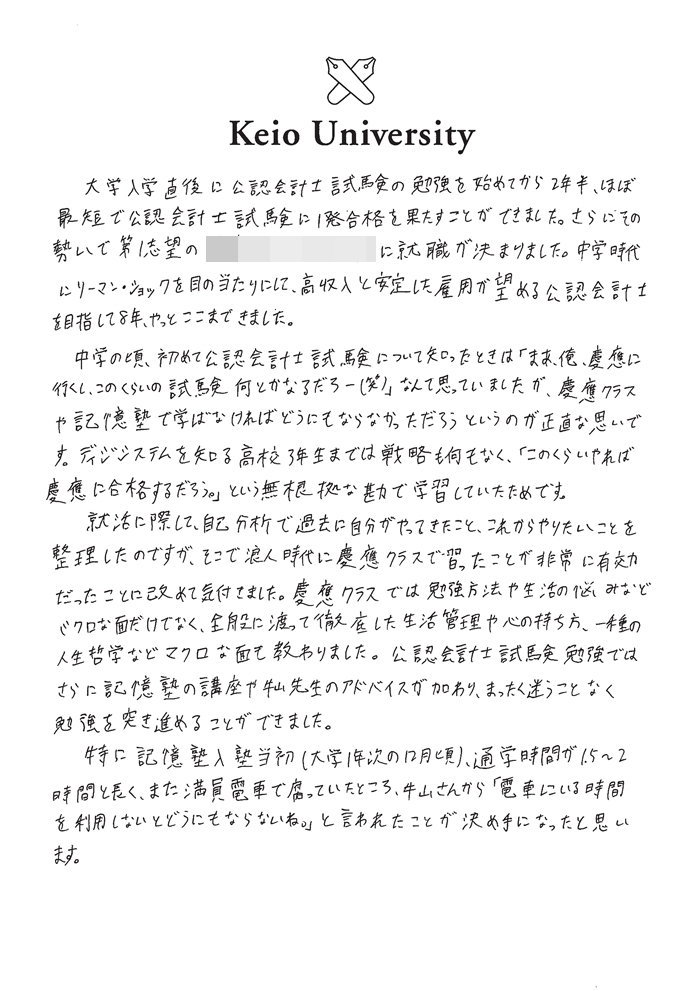 Keio University
大学入学直後に公認会計士試験の勉強を始めてから2年半、ほぼ
最短で公認会計士試験に1発合格を果たすことができました。さらにその
勢いで第1志望の
に就職が決まりました。中学時代
にリーマン・ショックを目の当たりにして、高収入と安定した雇用が望める公認会計士
を目指して8年、やっとここまできました。
中学の頃、初めて公認会計士試験について知ったときは「まぁ、俺、慶應に
行くし、このくらいの試験何とかなるだろー(笑)」なんて思っていましたが、慶應クラス
や記憶塾で学ばなければどうにもならなかっただろうというのが正直な思いで
す。ディジシステムを知る高校3年生までは戦略も何もなく、「このくらいやれば
慶應に合格するだろう。」という無根拠な勘で学習していたためです。
就活に際して、自己分析で過去に自分がやってきたこと、これからやりたいことを
整理したのですが、そこで浪人時代に慶應クラスで習ったことが非常に有効
だったことに改めて気付きました。慶應クラスでは勉強方法や生活の悩みなど
ミクロな面だけでなく、全般に渡って徹底した生活管理や心の持ち方、一種の
人生哲学などマクロな面も教わりました。公認会計士試験勉強では
さらに記憶塾の講座や牛山先生のアドバイスが加わり、まったく迷うことなく
勉強を突き進めることができました。
特に記憶塾入塾当初(大学1年次の12月頃)、通学時間が1.5〜2
時間と長く、また満員電車で腐っていたところ、牛山さんから「電車にいる時間
を利用しないとどうにもならないね。」と言われたことが決め手になったと思い
ます。